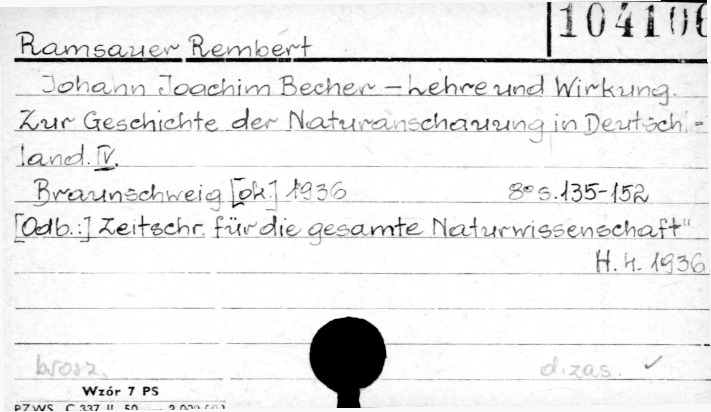 104106
Ramsauer Rembert
Johann Joachim Becher – Lehre und Wirkung.
Zur Geschichte der Naturanschauung in Deutsch-
land. IV.
Braunschweig [ok.] 1936 8° s. 135-152
[Odb.:] Zeitschr. für die gesamte Naturwissenschaft"
H. 4. 1936
brosz. d. zas. ✓
Wzór 7 PS
PZWS C 337 II 50 —